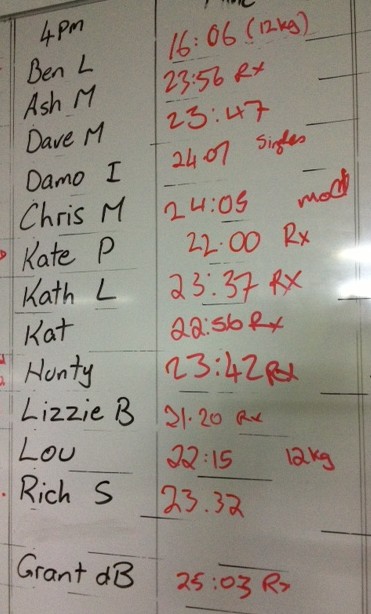 4pm
Ben L 16:06 (12kg)
Ash M 23:56 Rx
Dave M 23:47
Damo I 24:07 Singles
Chris M 24:05 mod
Kate P 22:00 Rx
Kath L 23:37 RX
Kat 22:56 Rx
Hunty 23:42 Rx
Lizzie B 21.20 Rx
Lou 22:15 12kg
Rich S 23.32
Grant dB 25:03 Rx